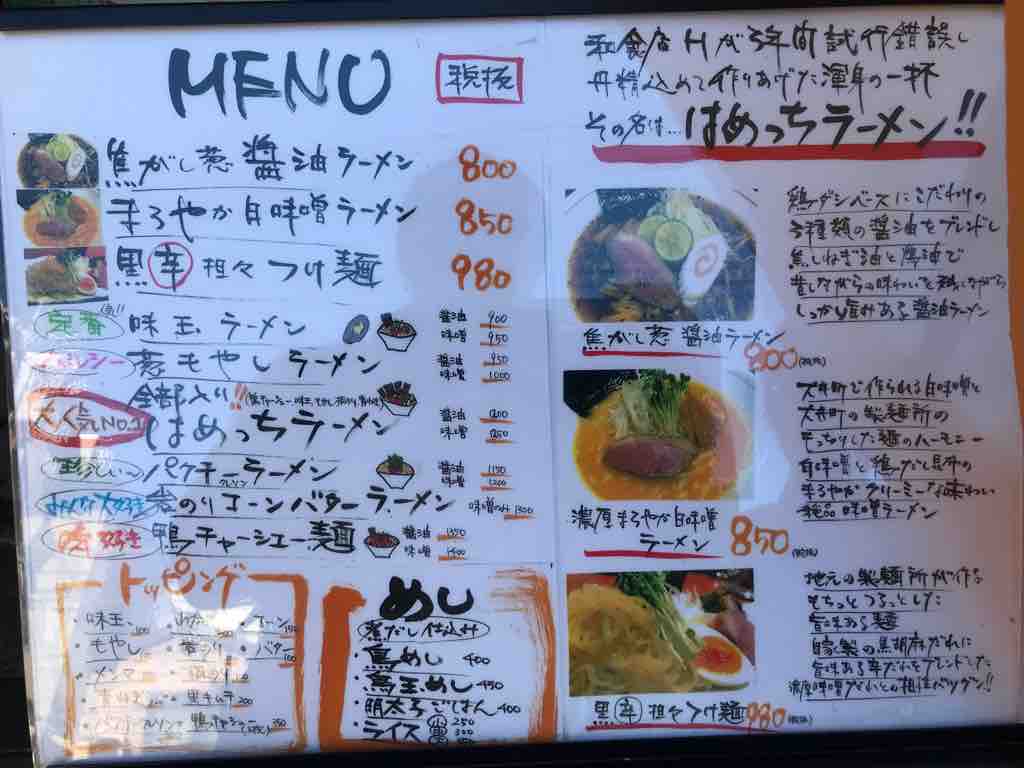 MENU
税抜
焦がし葱醤油ラーメン 800
まろやか白味噌ラーメン 850
黒辛担々つけ麺 980
定番 味玉ラーメン 醤油 900 味噌 950
ヘルシー 葱もやしラーメン 醤油 950 味噌 1000
大人気No.1 全部入り!!
はめっちラーメン 醤油 1200 味噌 1250
珍しい パクチーラーメン 醤油 1150 味噌 1200
みんな大好き のりコーンバターラーメン 味噌のみ 1300
鴨好き 鴨チャーシュー麺 醤油 1350 味噌 1400
トッピング
・味玉 100 ・コーン 150
・もやし ・バター 100
・メンマ
・黒キムチ 200
めし
煮だし仕込み
鳥めし 400
鳥玉めし 450
明太子ごはん 400
ライス 250
300
和食店Hが3年間試行錯誤し
丹精込めて作りあげた渾身の一杯
その名は…はめっちラーメン!!
鶏ダシベースにこだわりの
3種類の醤油をブレンドし
焦しねぎ油と鶏油で
昔ながらの味わいを残しながら
しっかり旨みある醤油ラーメン
焦がし葱醤油ラーメン
800(税抜)
大井町で作られる白味噌と
大井町の製麺所の
もっちりした麺のハーモニー
白味噌と鶏ガラと昆布の
まろやかクリーミーな味わい
絶品味噌ラーメン
濃厚まろやか白味噌
ラーメン 850(税抜)
地元の製麺所が作る
もちっとつるっとした
旨味ある麺
自家製の黒胡麻だれに
旨味ある辛だれをブレンドした
濃厚味噌ダレとの相性バツグン!!
黒辛担々つけ麺 980(税抜)